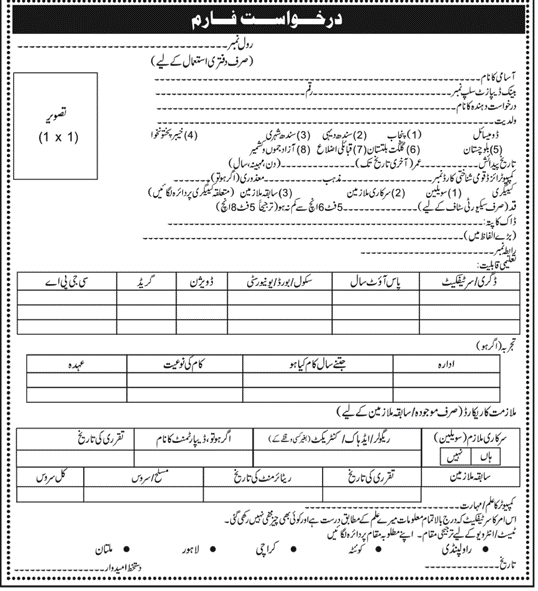 درخواست فارم
رول نمبر
(صرف دفتری استعمال کے لیے)
تصویر
(1 x 1)
آسامی کا نام
بینک ڈیپازٹ سلپ نمبر رقم
درخواست دہندہ کا نام
ولدیت
ڈومیسائل (1) پنجاب (2) سندھ دیہی (3) سندھ شہری (4) خیبر پختونخوا
(5) بلوچستان (6) گلگت بلتستان (7) قبائلی اضلاع (8) آزاد جموں و کشمیر
تاریخ پیدائش عمر (آخری تاریخ تک) (دن، مہینہ، سال)
کمپیوٹرائزڈ قومی شناختی کارڈ نمبر مذہب معذوری (اگر ہو تو)
کیٹیگری (1) سویلین (2) سرکاری ملازمین (3) سابقہ ملازمین (متعلقہ کیٹیگری پر دائرہ لگائیں)
قد: (صرف سیکیورٹی سٹاف کے لیے) 5 فٹ 6 انچ سے کم نہ ہو (ترجیحاً 5 فٹ 8 انچ)
ڈاک کا پتہ:
(بڑے الفاظ میں)
رابطہ نمبر
تعلیمی قابلیت:
ڈگری/سرٹیفکیٹ پاس آؤٹ سال سکول/بورڈ/یونیورسٹی ڈویژن گریڈ سی جی پی اے
تجربہ (اگر ہو)
ادارہ جتنے سال کام کیا ہو کام کی نوعیت عہدہ
ملازمت کا ریکارڈ (صرف موجودہ/سابقہ ملازمین کے لیے)
سرکاری ملازم (سویلین) ریگولر/ایڈہاک/کنٹریکٹ (بغیر کسی وقفے کے) اگر ہو تو، ڈیپارٹمنٹ کا نام تقرری کی تاریخ
ہاں نہیں
سابقہ ملازمین تقرری کی تاریخ ریٹائرمنٹ کی تاریخ مسلح/سروس کل سروس
کمپیوٹر کا علم/مہارت
اس امر کا سرٹیفکیٹ کہ درج بالا تمام معلومات میرے علم کے مطابق درست ہے اور کوئی بھی چیز مخفی نہیں رکھی گئی۔
ٹیسٹ/انٹرویو کے لیے ترجیحی مقام۔ اپنے مطلوبہ مقام پر دائرہ لگائیں
• راولپنڈی • کوئٹہ • کراچی • لاہور • ملتان
تاریخ دستخط امیدوار